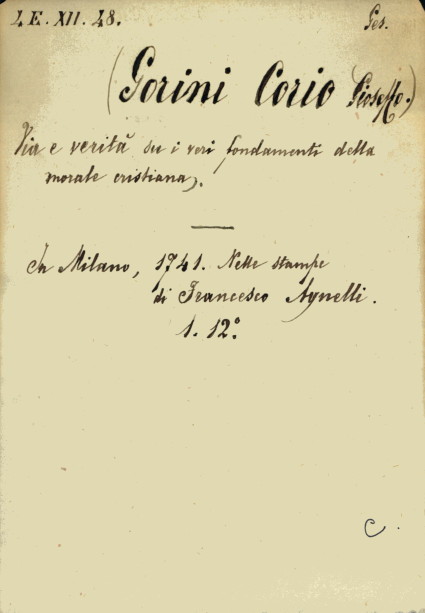 4 E. XII. 48. Ges.
(Gorini Corio (Gioseffo.)
Via e verità su i veri fondamenti della
morale cristiana,.
In Milano, 1741. Nelle stampe
di Francesco Agnelli.
1. 12.°
C.